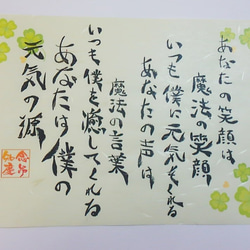 あなたの笑顔は
魔法の笑顔
いつも僕に元気をくれる
あなたの声は
魔法の言葉
いつも僕を癒してくれる
あなたは僕の
元気の源